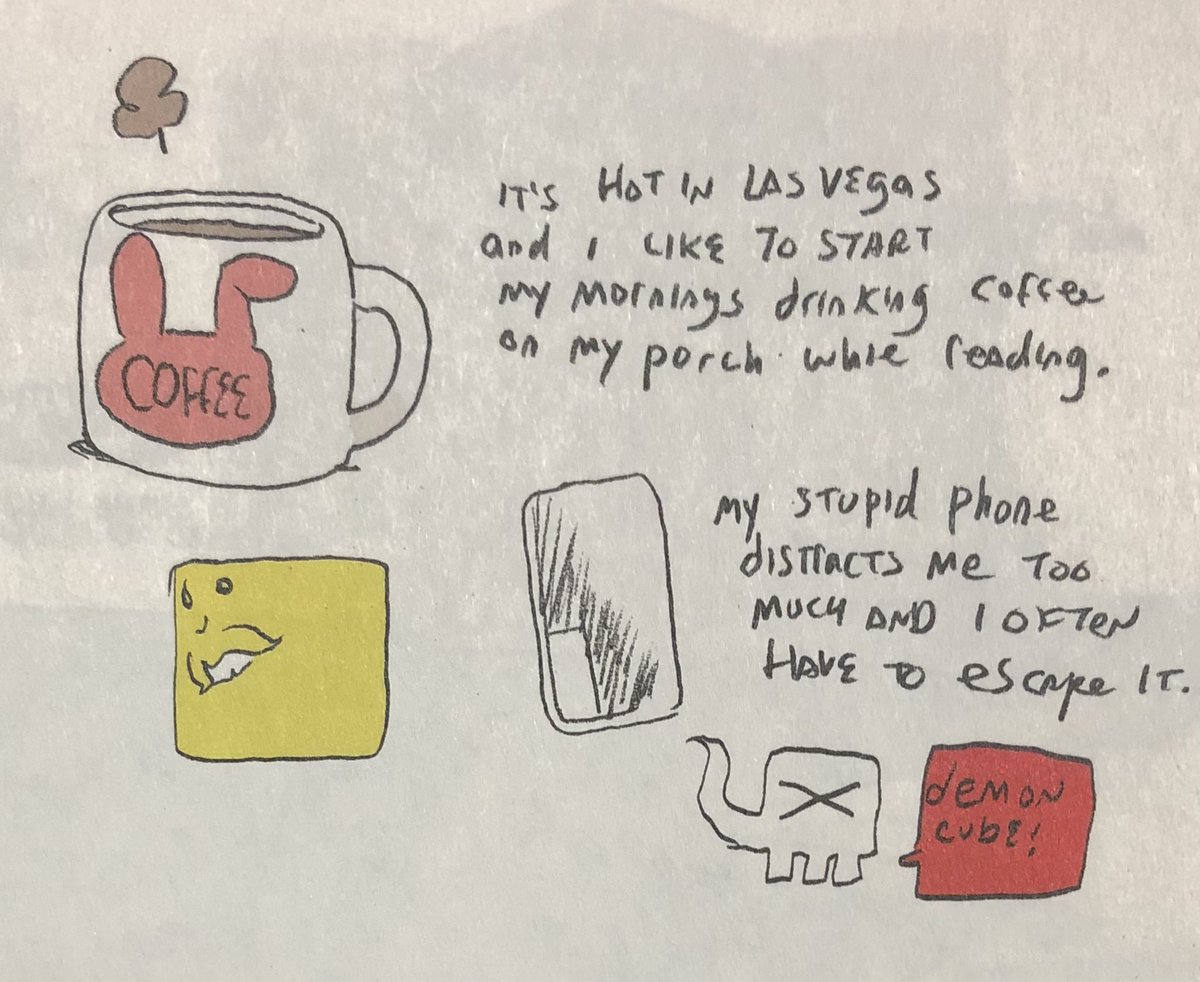 COFFEE
IT'S HOT IN LAS VEgAS
and I LIKE TO START
my mornings drinking coffee
on my porch while reading.
My STUPID PHONE
DISTRACTS ME TOO
MUCH AND I OFTEN
HAVE TO ESCAPE IT.
demon
cube!